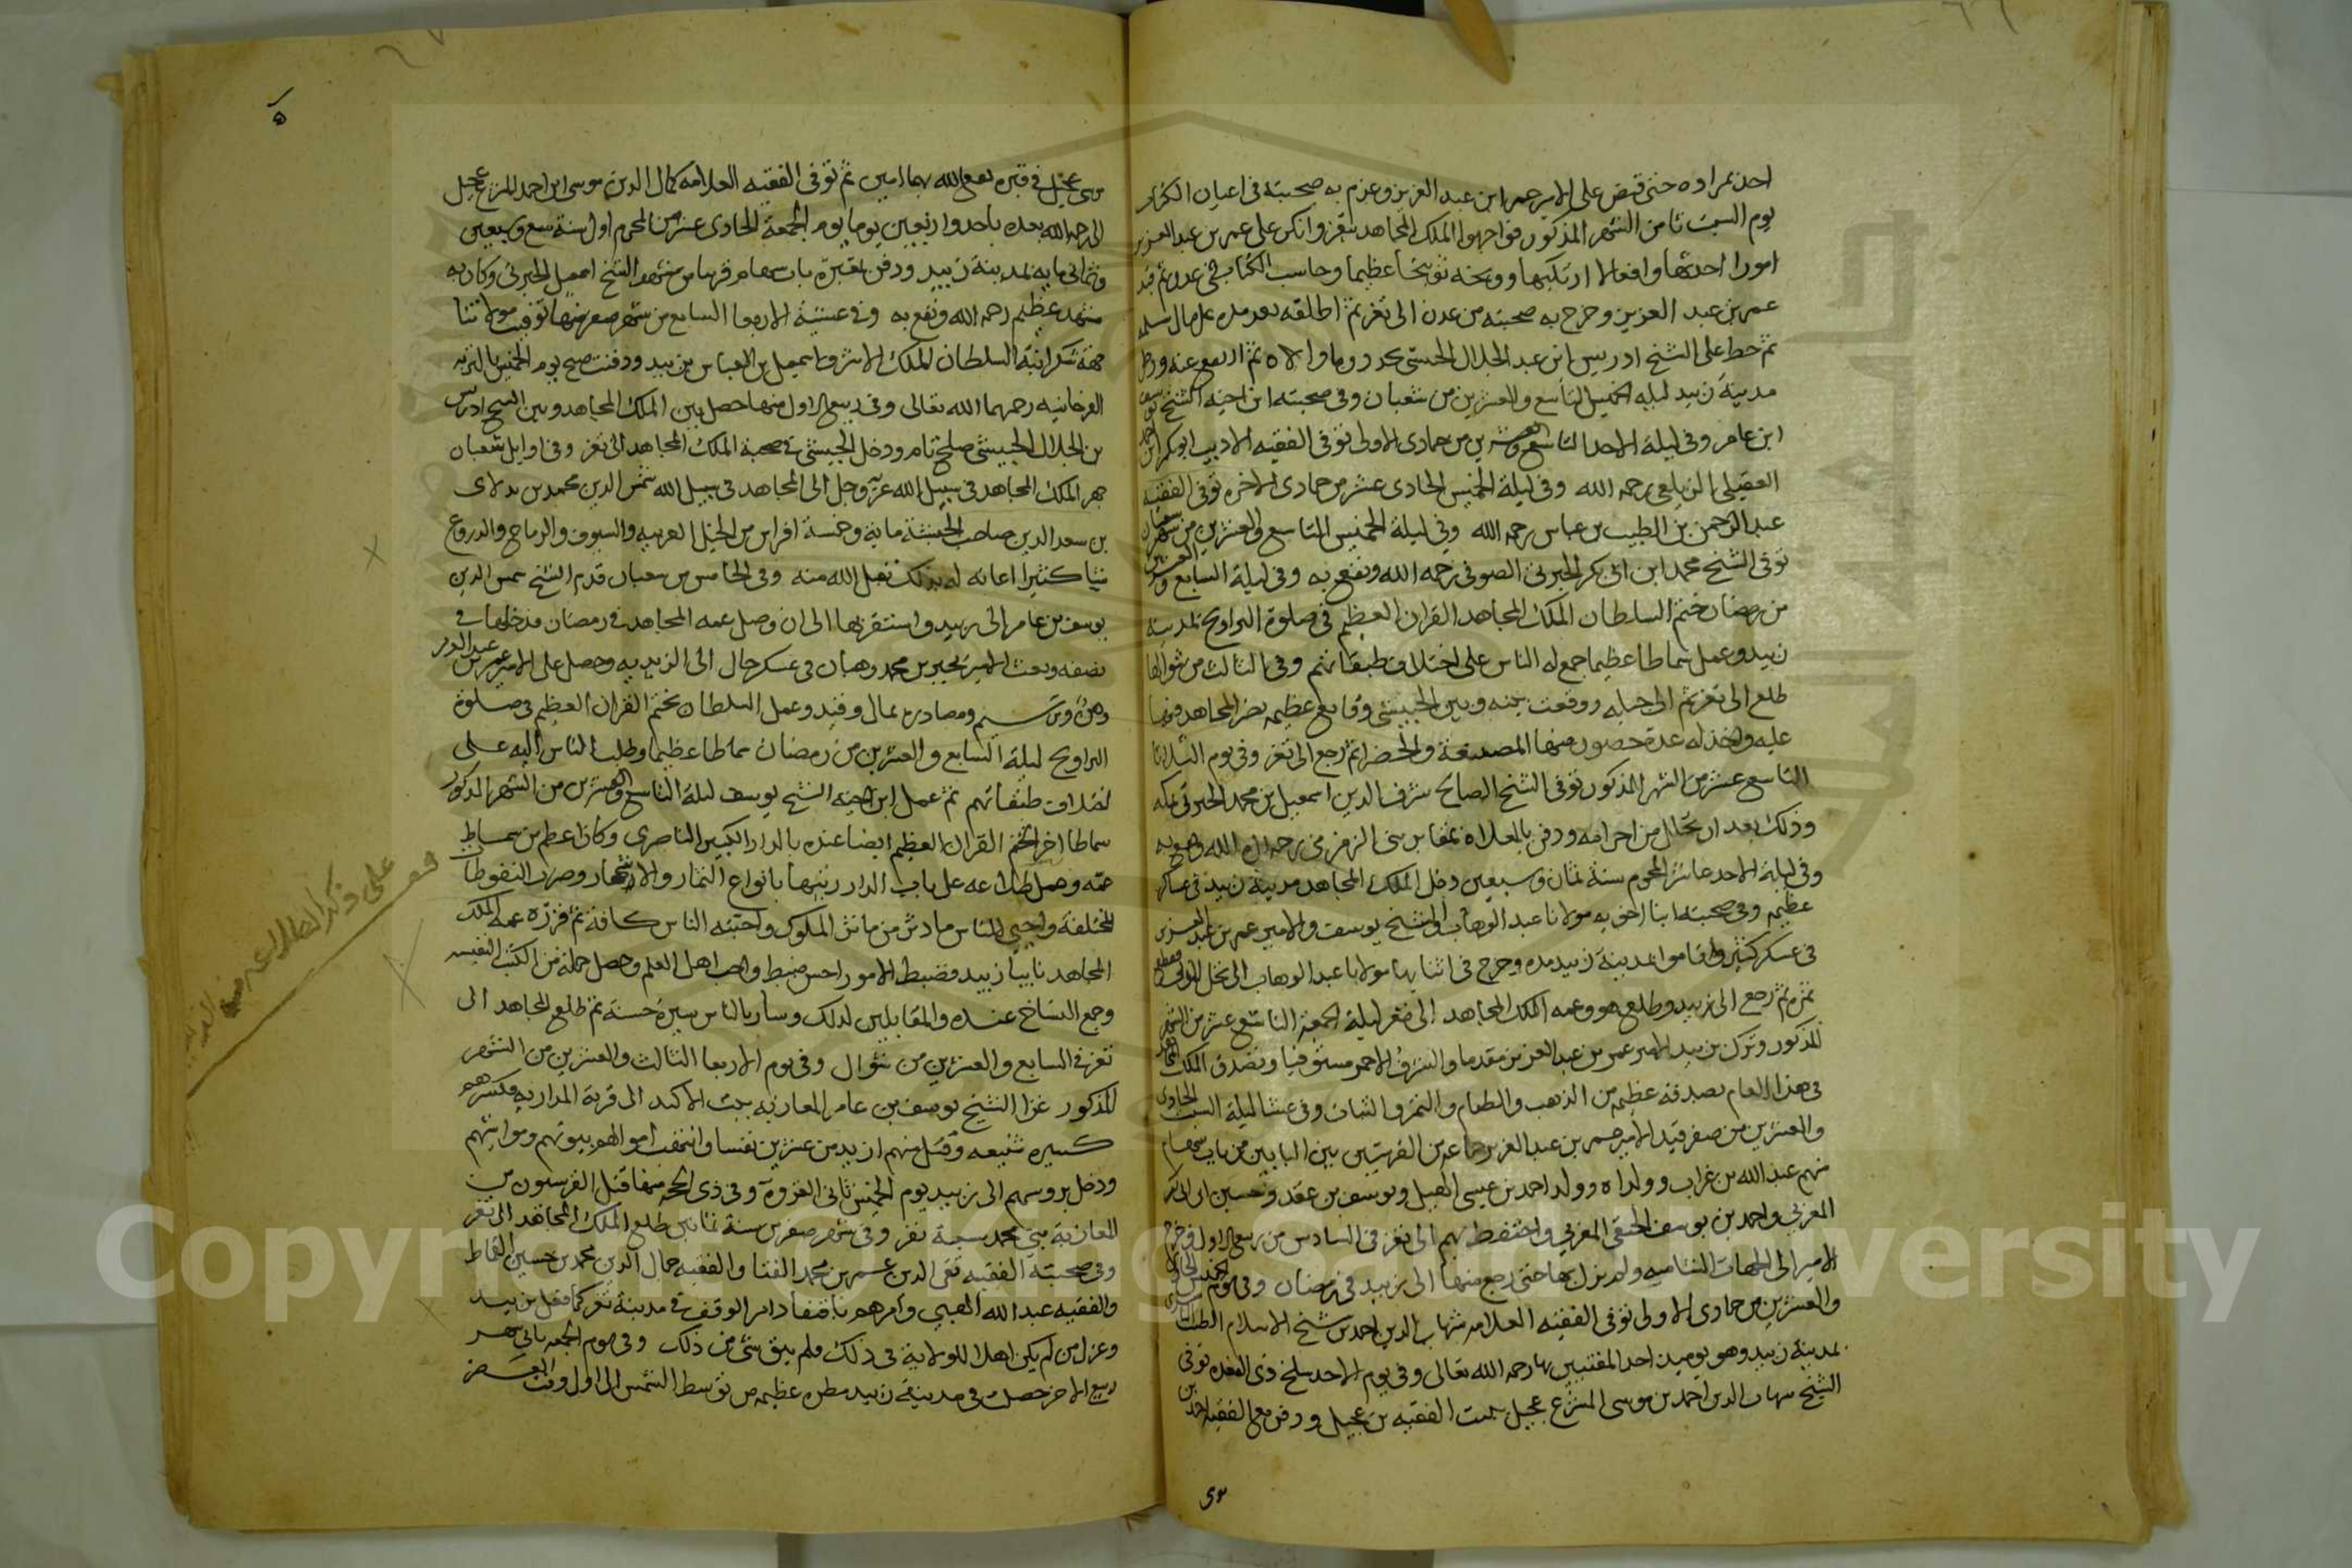 احد عمر اوه حتى قبض على الامير عمر ابن عبد العزيز وعزم به صحبته فى اعيان
يوم السبت ثامن الشهر المذكور فواجهوا الملك المجاهد بتعز وانكر على عمر بن عبد العزيز
امورا احدثها وافعالا ارتكبها ووبخه توبيخا عظيما وحاسب الكتاب فى عدن ثم قيد
عمر بن عبد العزيز وخرج به صحبته من عدن الى تغز ثم اطلقه بعد مده على مال سلمه
ثم حط على الشيخ ادريس ابن عبد الجلال الحبيشى وما والاه ثم ارتفع عنه ودخل
مدينة زبيد ليلة الخميس التاسع والعشرين من شعبان وفى صحبته ابن اخيه الشيخ يوسف
ابن عامر وفى ليلة الاحد التاسع والعشرين من جمادى الاولى توفى الفقيه الاديب ابو بكر ابن احمد
العقيلى الزيلعى رحمه الله وفى ليلة الخميس الحادى عشر من جمادى الاخره توفى الفقيه
عبد الرحمن بن الطيب بن عباس رحمه الله وفى ليلة الخميس التاسع والعشرين من شهر شعبان
توفى الشيخ محمد ابن ابى بكر الجبرتى الصوفى رحمه الله ونفع به وفى ليلة السابع والعشرين
من رمضان ختم السلطان الملك المجاهد القران العظيم فى صلوة التراويح بمدينة
زبيد وعمل سماطا عظيما جمع له الناس على اختلاف طبقاتهم وفى الثالث من شوالها
طلع الى تعز ثم الى جبله ووقعت بينه وبين الحبيشى وقايع عظيمه نصر المجاهد فيها
عليه واخذ له عدة حصون منها المصنعة والخضرا ثم رجع الى تعز وفى يوم الثلاثا
التاسع عشر من الشهر المذكور توفى الشيخ الصالح شرف الدين اسمعيل بن محمد الجبرتى بمكه
وذلك بعد ان تحلل من احرامه ودفن بالمعلاة بمقابر بنى الزمزمى رحمه الله ونفع به
وفى ليلة الاحد عاشر المحرم سنة ثمان وسبعين دخل الملك المجاهد مدينة زبيد فى عسكر
عظيم وفى صحبته ابنا اخويه مولانا عبد الوهاب والشيخ يوسف والامير عمر بن عبد العزيز
فى عسكر كثير واقاموا بمدينة زبيد مده وخرج فى اثنايها مولانا عبد الوهاب الى نخل
ثمره ثم رجع الى زبيد وطلع هو وعمه الملك المجاهد الى تعز ليلة الجمعة التاسع عشر من الشهر
المذكور وترك بزبيد الامير عمر بن عبد العزيز مقدما والشرف الاحمر مستوفيا وتصدق الملك المجاهد
فى هذا العام بصدقه عظيمه من الذهب والطعام والتمر والثياب وفى عشا ليلة السبت الحادى
والعشرين من صفر قيد الامير عمر بن عبد العزيز جماعه من القرشيين بين البابين من باب سهام
منهم عبد الله بن غراب وولداه وولد احمد بن عيسى الهبل ويوسف بن عقد وحسين ابن ابى بكر
المعزبى واحمد بن يوسف الحنفى المعزبى واحتفظ بهم الى تعز فى السادس من ربيع الاول وخرج
الامير الى الجهات الشاميه ولم يزل بها حتى رجع منها الى زبيد فى رمضان وفى يوم الخميس الحادى
والعشرين من جمادى الاولى توفى الفقيه العلامه شهاب الدين احمد بن شيخ الاسلام الطيب الناشرى
بمدينة زبيد وهو يوميد احد المفتيين بها رحمه الله تعالى وفى يوم الاحد سلخ ذى القعده توفى
الشيخ شهاب الدين احمد بن موسى المشرع عجيل ببيت الفقيه بن عجيل ودفن مع الفقيه احمد بن
موسى
موسى عجيل فى قبره نفع الله بهما امين ثم توفى الفقيه العلامه كمال الدين موسى ابن احمد المشرع عجيل
الى رحمة الله بعده باحد واربعين يوما يوم الجمعة الحادى عشر من المحرم اول سنة تسع وسبعين
وثمانى مايه بمدينة زبيد ودفن بمقبرة باب سهام قريبا من مشهد الشيخ اسمعيل الجبرتى وكان به
مشهد عظيم رحمه الله ونفع به وفى عشية الاربعا السابع من شهر صفر منها توفيت مولاتنا
جهة شكر ابنة السلطان الملك الاشرف اسمعيل بن العباس بزبيد ودفنت صبح يوم الخميس بالتربه
الفرحانيه رحمهما الله تعالى وفى ربيع الاول منها حصل بين الملك المجاهد وبين الشيخ ادريس
بن الجلال الحبيشى صلح تام ودخل الحبيشى فى صحبة الملك المجاهد الى تعز وفى اوايل شعبان
جهز الملك المجاهد فى سبيل الله عز وجل الى المجاهد فى سبيل الله شمس الدين محمد بن بدلاى
بن سعد الدين صاحب الحبشة ماية وخمسة افراس من الخيل العربيه والسيوف والرماح والدروع
شيا كثيرا اعانه له بذلك تقبل الله منه وفى الخامس من شعبان قدم الشيخ شمس الدين
يوسف بن عامر الى زبيد واستقر بها الى ان وصل عمه المجاهد فى رمضان فدخلها فى
نصفه وبعث الامير يحيى بن محمد وهبان فى عسكر حال الى الزيديه وحصل على الامير عمر بن عبد العزيز
وهن وترسيم ومصادره بمال وقيد وعمل السلطان بختم القران العظيم فى صلوة
التراويح ليلة السابع والعشرين من رمضان سماطا عظيما وطلب الناس اليه على
اختلاف طبقاتهم ثم عمل ابن اخيه الشيخ يوسف ليلة التاسع والعشرين من الشهر المذكور
سماطا اخر لختم القران العظيم ايضا عنده بالدار الكبير الناصرى وكان اعظم من سماط
عمه وعمل طلاعه على باب الدار زينها بانواع الثمار والاشجار وضرب النفوطات
المختلفة واحيى للناس ما دثر من ماثر الملوك واحبته الناس كافة ثم قرره عمه الملك
المجاهد نايبا بزبيد فضبط الامور احسن ضبط واحب اهل العلم وحصل جملة من الكتب النفيسه
وجمع النساخ عنده والمقابلين لذلك وسار بالناس سيرة حسنة ثم طلع المجاهد الى
تعز فى السابع والعشرين من شوال وفى يوم الاربعا الثالث والعشرين من الشهر
المذكور غزا الشيخ يوسف بن عامر المعازبه ببيت الاكيد الى قرية المداريه فكسرهم
كسيره شنيعه وقتل منهم ازيد من عشرين نفسا وانتهب اموالهم بيوتهم ومواشيهم
ودخل بروسهم الى زبيد يوم الخميس ثانى الغزوة وفى ذى الحجه منها قتل القرشيون من
المعازبة بنى محمد سبعة نفر وفى شهر صفر من سنة ثمانين طلع الملك المجاهد الى تعز
وفى صحبته الفقيه تقى الدين عمر بن محمد الفتا والفقيه جمال الدين محمد بن حسين القماط
والفقيه عبد الله الهبى وامرهم باقتفا دامر الوقف فى مدينة تعز كما فعل بزبيد
وعزل من لم يكن اهلا للولاية فى ذلك فلم يبق شى من ذلك وفى يوم الجمعه ثانى شهر
ربيع الاخر حصلت فى مدينة زبيد مطره عظيمه من توسط الشمس الى اول وقت العصر